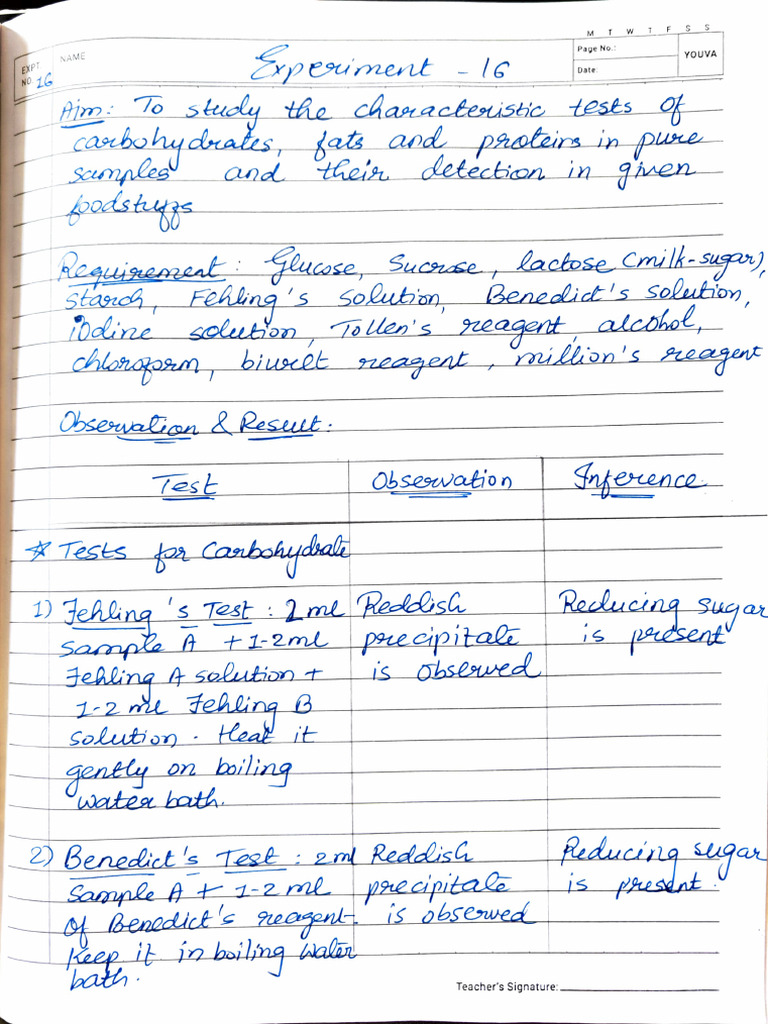 M T W T F S S
EXPT. NO. 16
NAME
Page No.:
Date:
YOUVA
Experiment - 16
Aim: To study the characteristic tests of
carbohydrates, fats and proteins in pure
samples and their detection in given
foodstuffs
Requirement: Glucose, Sucrose, lactose (milk-sugar),
starch, Fehling's solution, Benedict's solution,
iodine solution, Tollen's reagent, alcohol,
chloroform, biuret reagent, million's reagent
Observation & Result:
Test
Observation
Inference
* Tests for Carbohydrate
1) Fehling's Test: 2 ml
sample A + 1-2 ml
Fehling A solution +
1-2 ml Fehling B
solution. Heat it
gently on boiling
water bath.
Reddish
precipitate
is observed
Reducing sugar
is present
2) Benedict's Test: 2 ml
sample A + 1-2 ml
of Benedict's reagent.
Keep it in boiling water
bath.
Reddish
precipitate
is observed
Reducing sugar
is present.
Teacher's Signature: